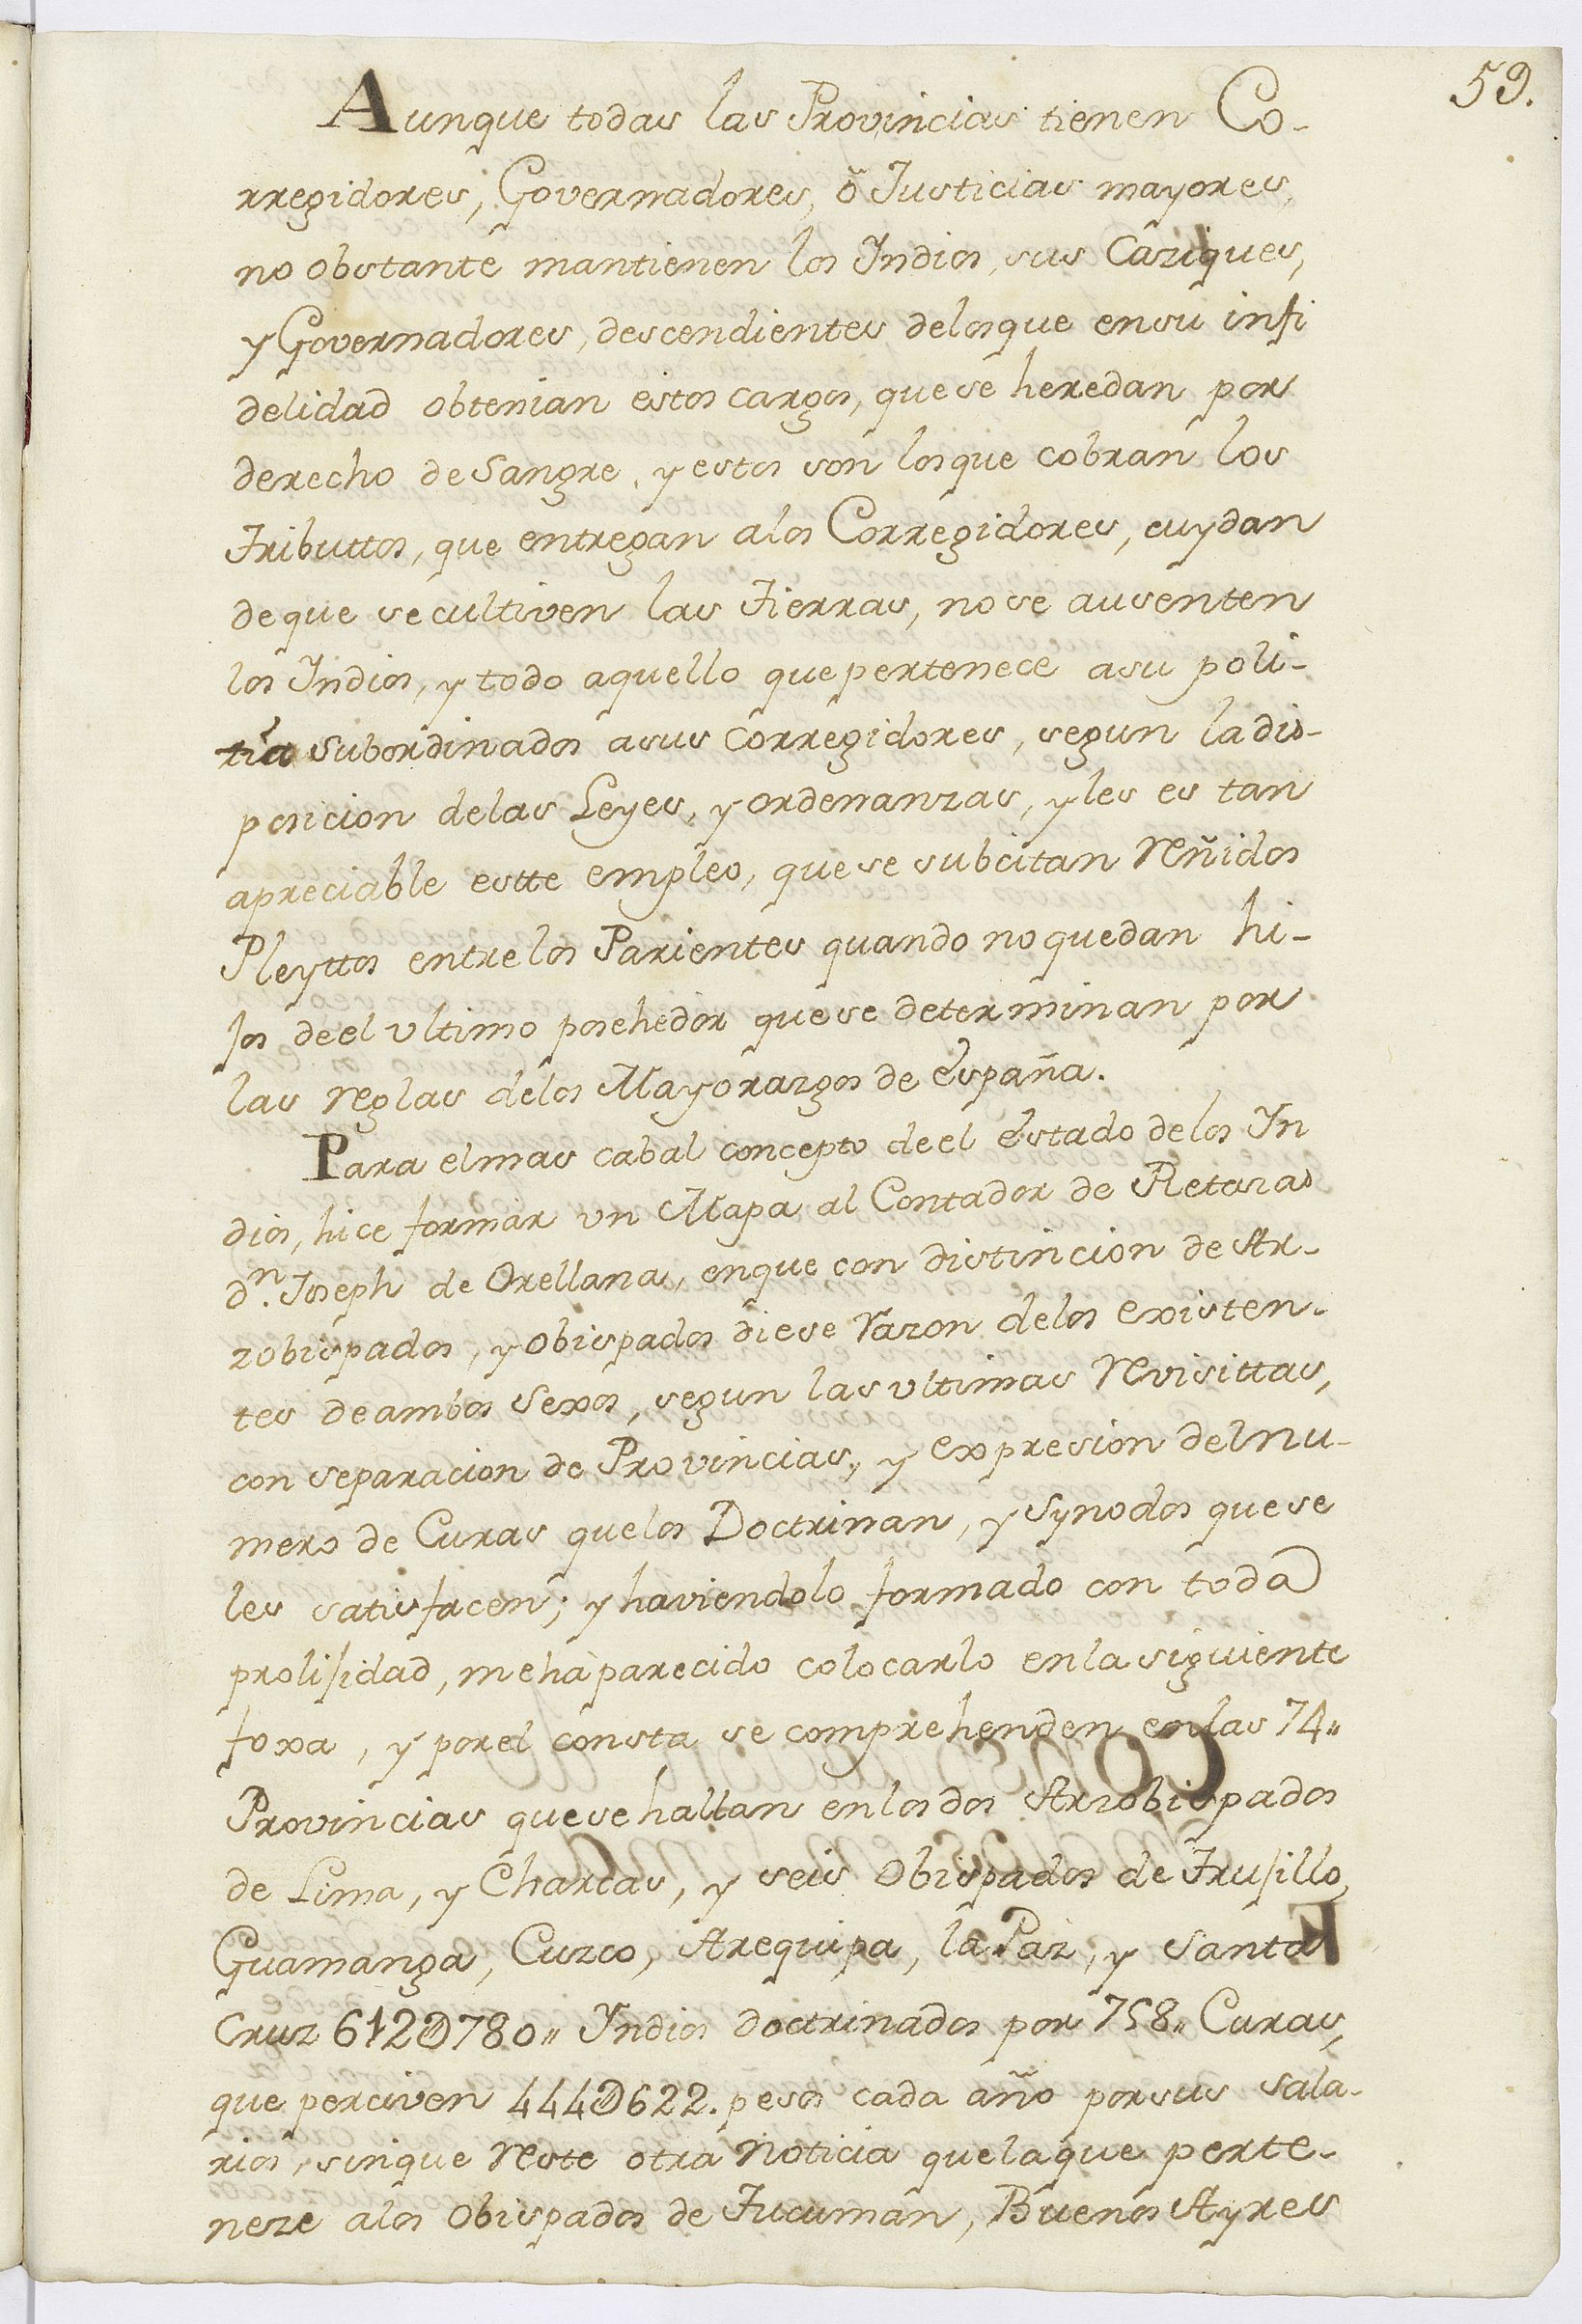 59.
Aunque todas las Provincias tienen Co-
rregidores, Governadores, ô Justicias mayores,
no obstante mantienen los Indios, sus Caziques,
y Governadores, descendientes delosque ensu infi
delidad obtenian estos cargos, quese heredan por
derecho de Sangre, y estos son losque cobran los
Tributtos, que entregan alos Corregidores, cuydan
deque secultiven las Tierras, nose ausenten
los Indios, y todo aquello quepertenece asu poli-
tia subordinados asus Corregidores, segun ladis-
posicion delas Leyes, y ordenanzas, yles es tan
apreciable estte empleo, quese subcitan reñidos
Pleyttos entrelos Parientes quando noquedan hi-
jos deel ultimo posehedor quese determinan por
las reglas delos Mayorazgos de España.
Para elmas cabal concepto deel Estado delos Yn
dios, hice formar un Mapa al Contador de Retazas
dn. Joseph de Orellana, enque con distincion de Ar-
zobispados, y obispados diese razon delos existen-
tes deambos Sexos, segun lasultimas revisittas,
con separacion de Provincias, y expresion delnu-
mero de Curas quelos Doctrinan, y Synodos quese
les satisfacen; y haviendolo formado con toda
prolijidad, mehà parecido colocarlo enlasiguiente
foxa, y porel consta se comprehenden enlas 74„
Provincias quesehallan enlosdos Arzobispados
de Lima, y Charcas, y seis Obispados de Trujillo,
Guamanga, Cuzco, Arequipa, la Paz, y Santa
Cruz 612@780„ Yndios doctrinados por 758„ Curas,
que perciven 444@622. pesos cada año porsus Sala-
rios, sinque reste otra Noticia quelaque perte-
neze alos Obispados de Tucuman, Buenos Ayres